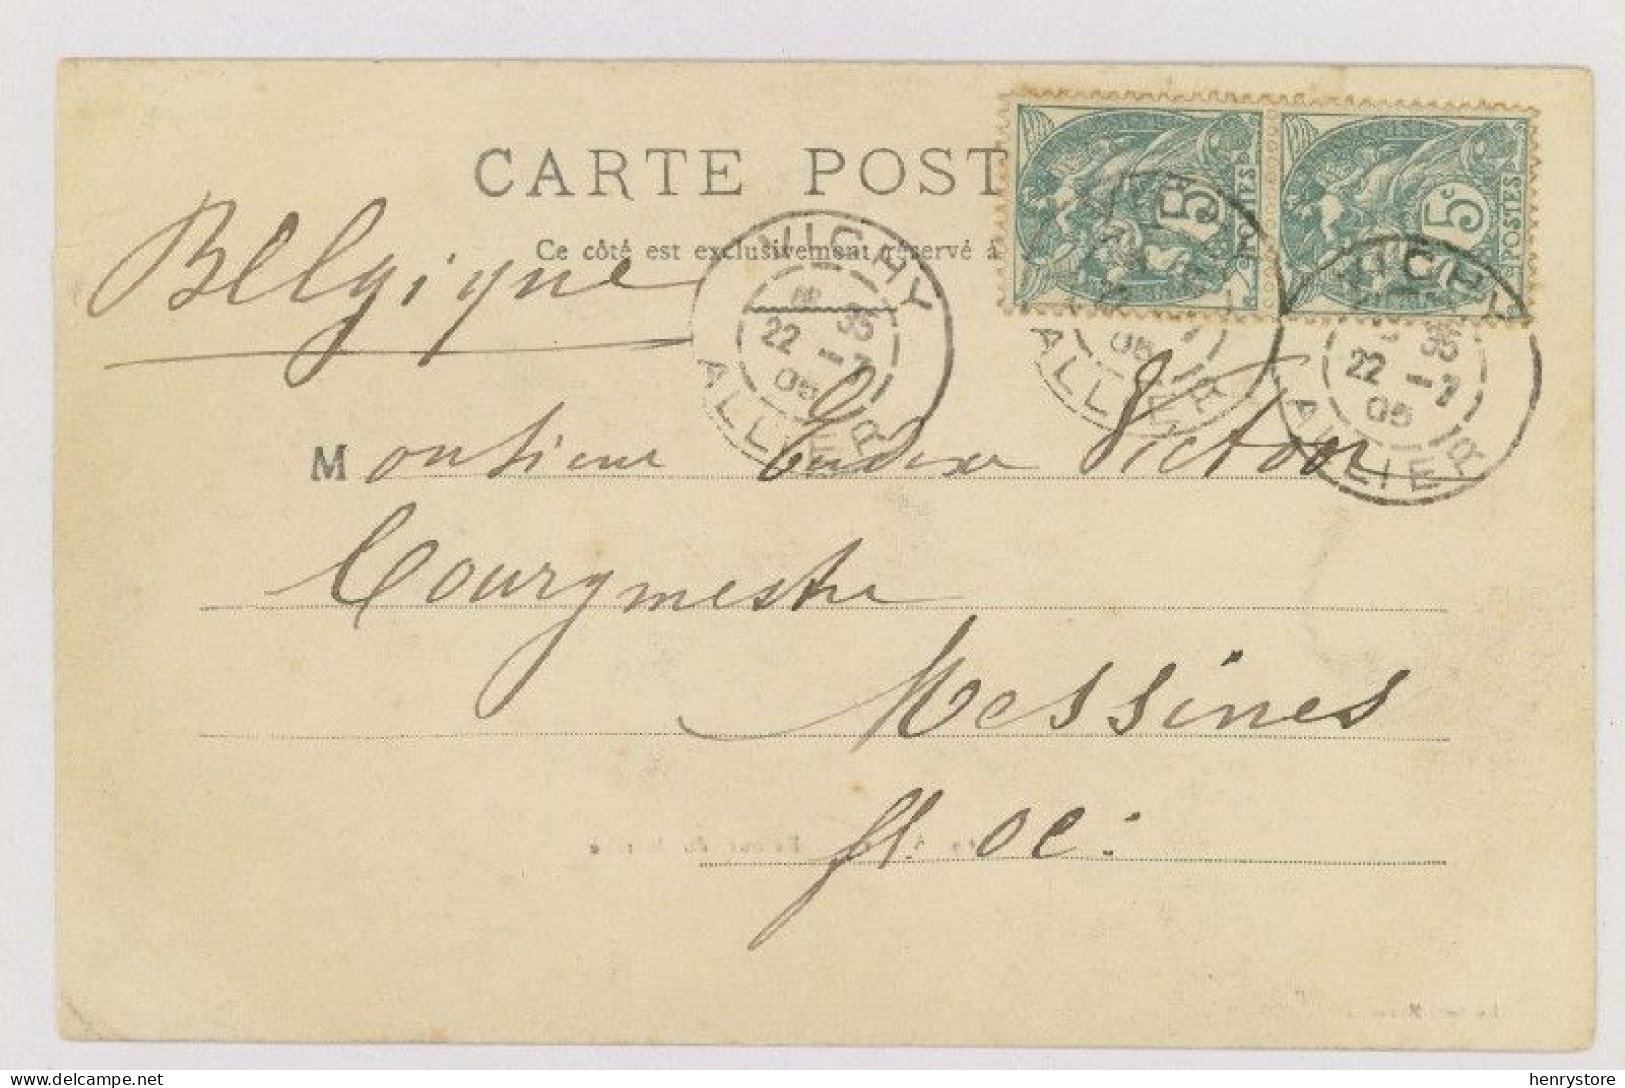 CARTE POST
Ce côté est exclusivement réservé à
Belgique
VICHY
35
22 -7
05
ALLIER
5c
POSTES
5c
POSTES
VICHY
35
22 -7
05
ALLIER
05
ALLIER
Monsieur Victor
Bourgmestre
Messines
fl. oc:
henrystore